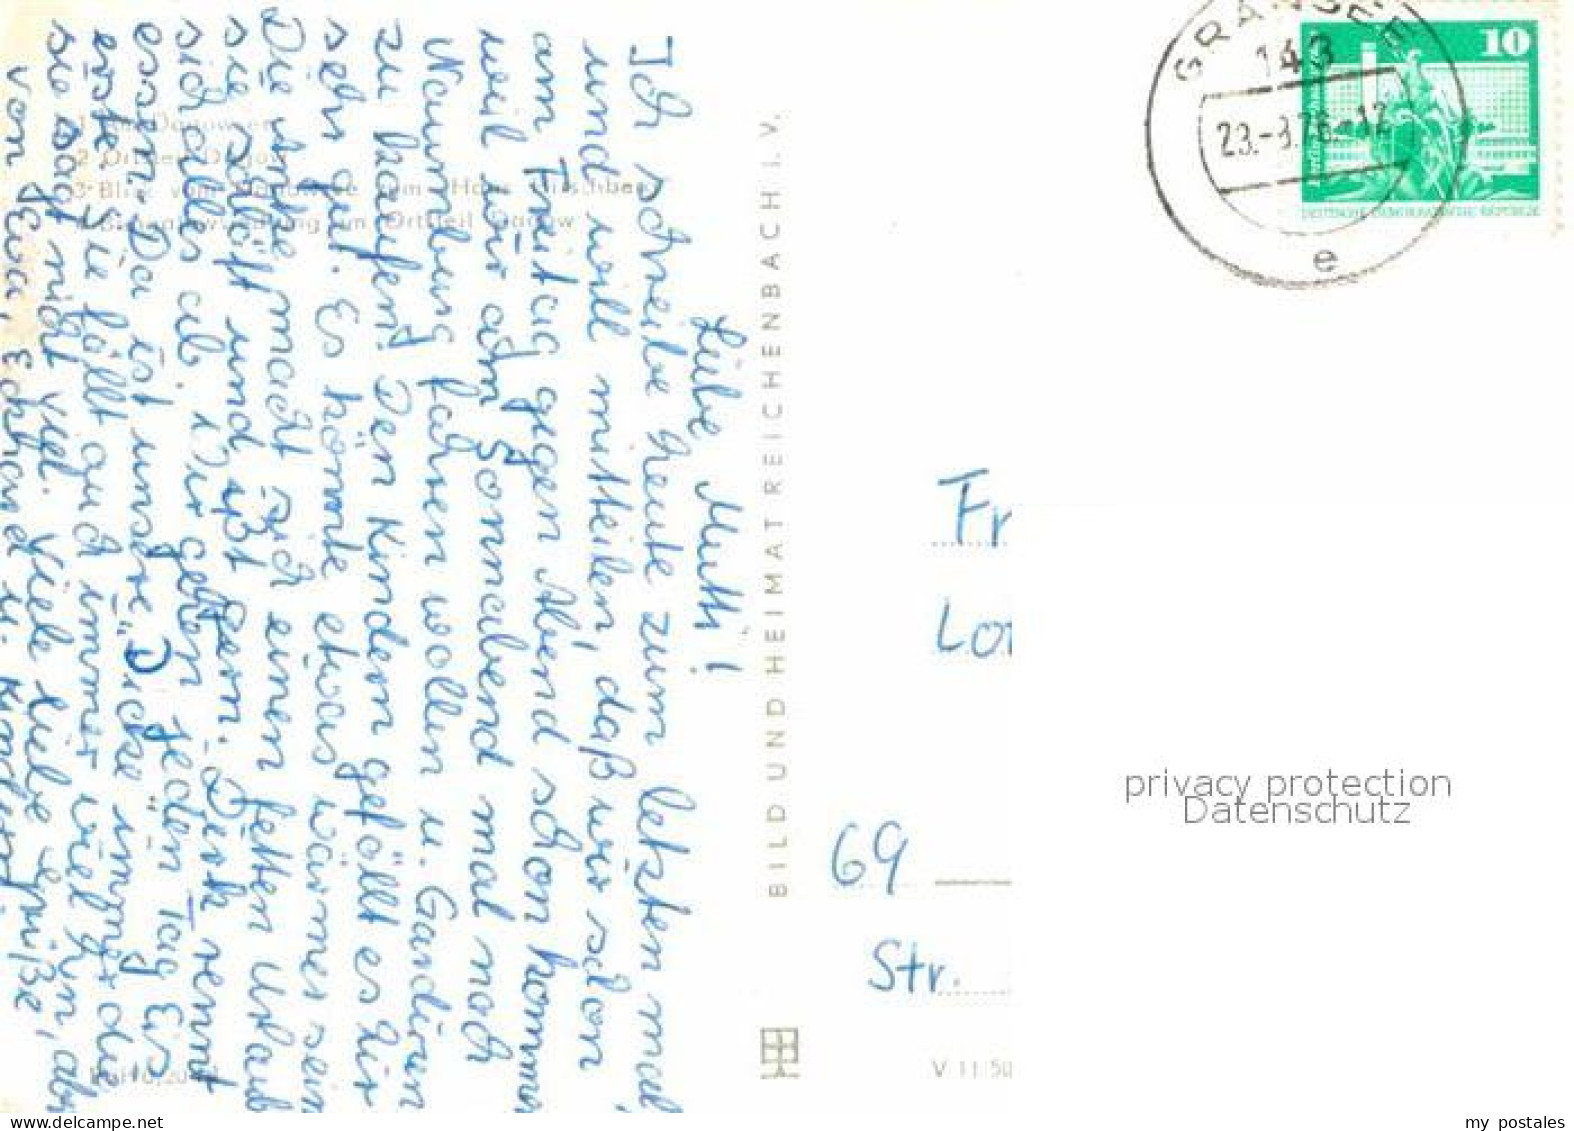 Liebe Mutti!
Ich schreibe heute zum letzten mal,
und will mitteilen, daß wir schon
am Freitag gegen Abend schon kommen
weil wir am Sonnabend mal nach
Naumburg fahren wollen u. Gardinen
zu kaufen. Den Kindern gefällt es hir
sehr gut. Es könnte etwas wärmer sein
Die Antje macht sich einen fetten Urlaub
sie schläft und ißt gern. Dirk rennt
sich alles ab. Wir gehen jeden Tag Eis
essen. Da ist unsere "Dicke immer die
erste. Sie fällt auch immer viel hin, aber
sie sagt nicht viel. Viele liebe Grüße,
von Eckhard u. Kindern
1
2 Ortsteil Dagow
3 Blick vom zum
4 im Ortsteil Dagow
BILD UND HEIMAT REICHENBACH I. V.
V 11 50
GRANSEE
143
23.-8.76.-12
e
10
DEUTSCHE DEMOKRATISCHE REPUBLIK
Fr
Lot
69
Str.
privacy protection
Datenschutz
www.delcampe.net
my_postales